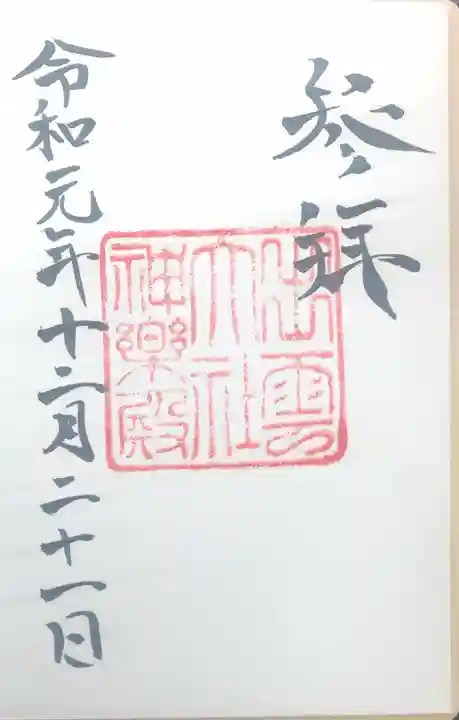 参拝
出雲
大社
神樂殿
令和元年十二月二十一日